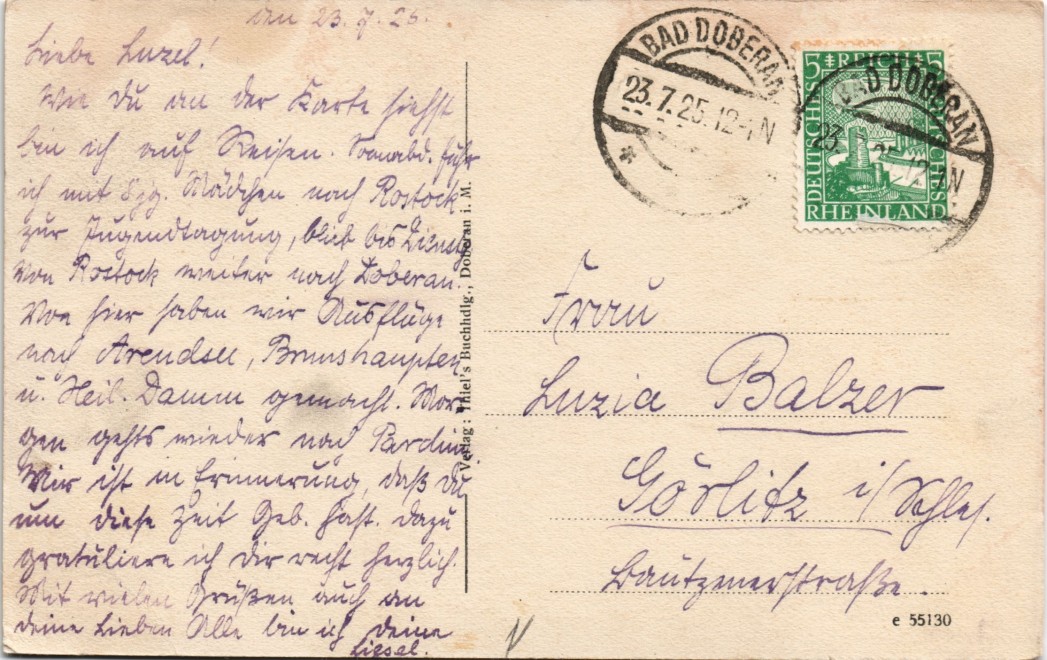 den 23.7.25.
Liebe Luzel!
Wie Du an der Karte siehst
bin ich auf Reisen. Sonnabd. fuhr
ich mit Mädchen nach Rostock
zur Jugendtagung, blieb bis Dienstg
Von Rostock weiter nach Doberan.
Von hier haben wir Ausflüge
nach Arendsee, Brunshaupten
u. Heil. Damm gemacht. Mor-
gen gehts wieder nach
Mir ist in Erinnerung, daß Du
um diese Zeit Geb. hast. Dazu
gratuliere ich Dir recht herzlich.
Mit vielen Grüßen auch an
deine Lieben Alle bin ich deine
Liesel.
Verlag: Thiel's Buchhdlg., Doberan i. M.
BAD DOBERAN
23.7.25.12-1N
*
BAD DOBERAN
23. 25.12-1N
5 REICH 5
DEUTSCHES REICHES
RHEINLAND
Frau
Luzia Balzer
Görlitz i/Schles.
Bautznerstraße.
e 55130